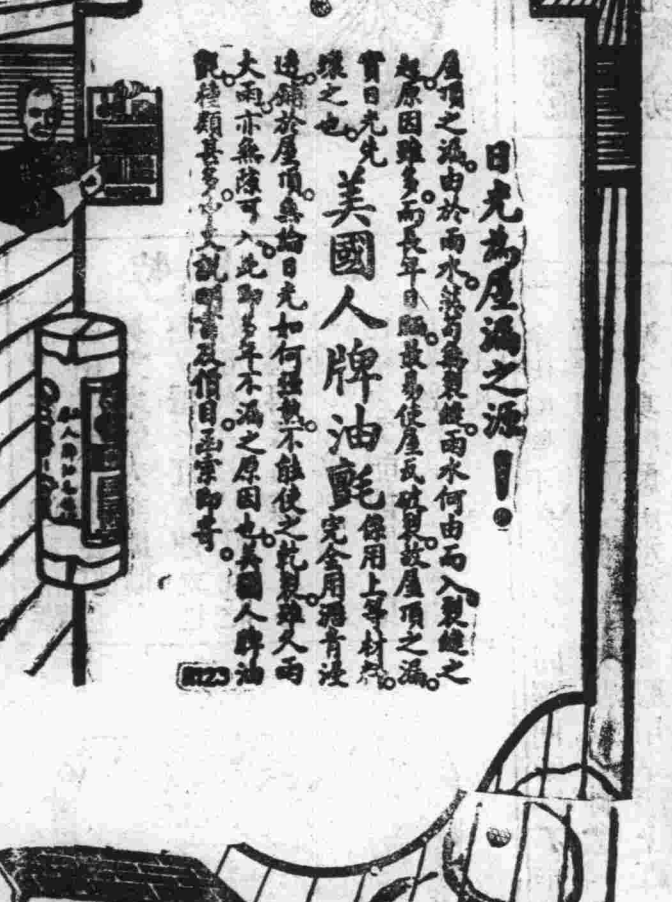 日光為屋漏之源！
屋頂之漏。由於雨水。蓋苟無裂縫。雨水何由而入。裂縫之
起。原因雖多。而長年日曬。最易使屋瓦破裂。故屋頂之漏。
實日光先
壞之也。
美國人牌油毡
係用上等材料。
完全用瀝青浸
透。鋪於屋頂。無論日光如何強熱。不能使之乾裂。雖久雨
大雨。亦無隙可入。此即多年不漏之原因也。美國人牌油
毡。種類甚多。說明書及價目函索即寄。
人牌油毛毡